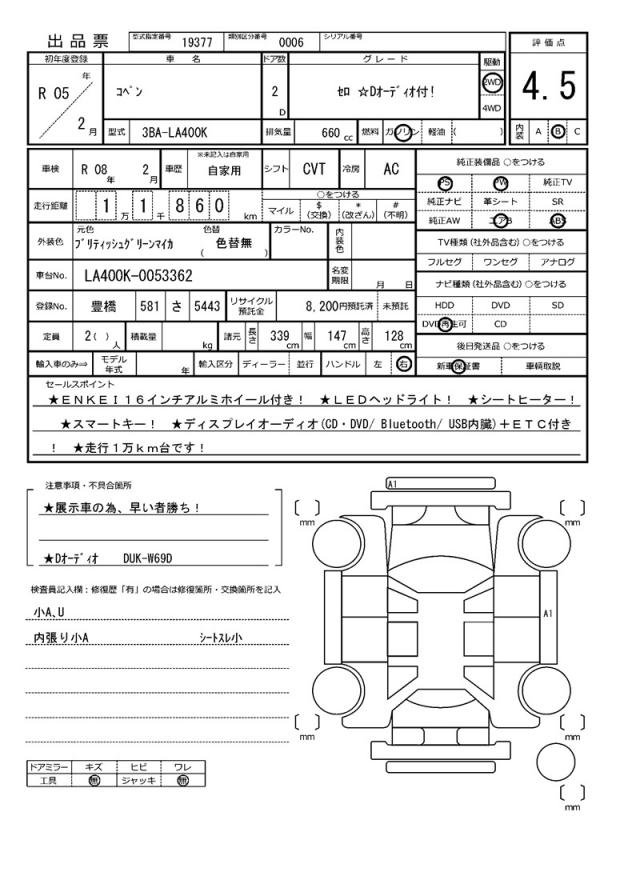 出品票 型式指定番号 19377 類別区分番号 0006 シリアル番号
初年度登録 車名 ドア数 グレード 駆動 評価点
R 05 年 2 月 コペン 2 D セロ ☆Dオーディオ付! 2WD 4WD 4.5
型式 3BA-LA400K 排気量 660 cc 燃料 ガソリン 軽油 ( ) 内装 A B C
車検 R 08 年 2 月 車歴 ※未記入は自家用 自家用 シフト CVT 冷房 AC
走行距離 1 万 1 千 8 6 0 km ○をつける マイル $ (交換) * (改ざん) # (不明)
外装色 元色 ブリティッシュグリーンマイカ 色替 ( 色替無 ) カラーNo. 内装色
車台No. LA400K-0053362 名変期限 月 日
登録No. 豊橋 581 さ 5443 リサイクル預託金 8,200円預託済 未預託
定員 2( ) 人 積載量 kg 諸元 長さ 339 cm 幅 147 cm 高さ 128 cm
輸入車のみ⇒ モデル年式 年 輸入区分 ディーラー 並行 ハンドル 左 右
純正装備品 ○をつける
PS PW 純正TV
純正ナビ 革シート SR
純正AW エアB ABS
TV種類 (社外品含む) ○をつける
フルセグ ワンセグ アナログ
ナビ種類 (社外品含む) ○をつける
HDD DVD SD
DVD再生可 CD
後日発送品 ○をつける
新車保証書 車輌取説
セールスポイント
★ENKEI16インチアルミホイール付き! ★LEDヘッドライト! ★シートヒーター!
★スマートキー! ★ディスプレイオーディオ(CD・DVD/ Bluetooth/ USB内臓)+ETC付き
! ★走行1万km台です!
注意事項・不具合箇所
★展示車の為、早い者勝ち!
★Dオーディオ DUK-W69D
検査員記入欄:修復歴「有」の場合は修復箇所・交換箇所を記入
小A、U
内張り小A シートスレ小
ドアミラー キズ ヒビ ワレ
工具 無 ジャッキ 無
A1
[ ] mm [ ] mm
A1
[ ] mm [ ] mm
[ ] mm